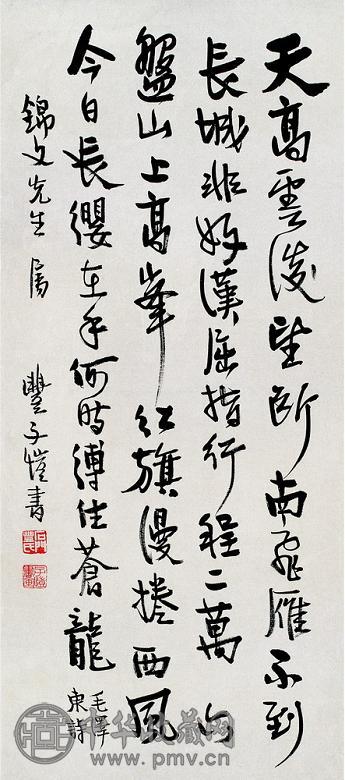 天高雲淡望断南飛雁不到
長城非好漢屈指行程二萬六
盤山上高峯紅旗漫捲西風
今日長纓在手何時縛住蒼龍
毛澤
東詩
錦文先生屬
豐子愷書
石門豐氏
中华收藏网
www.pmv.cn